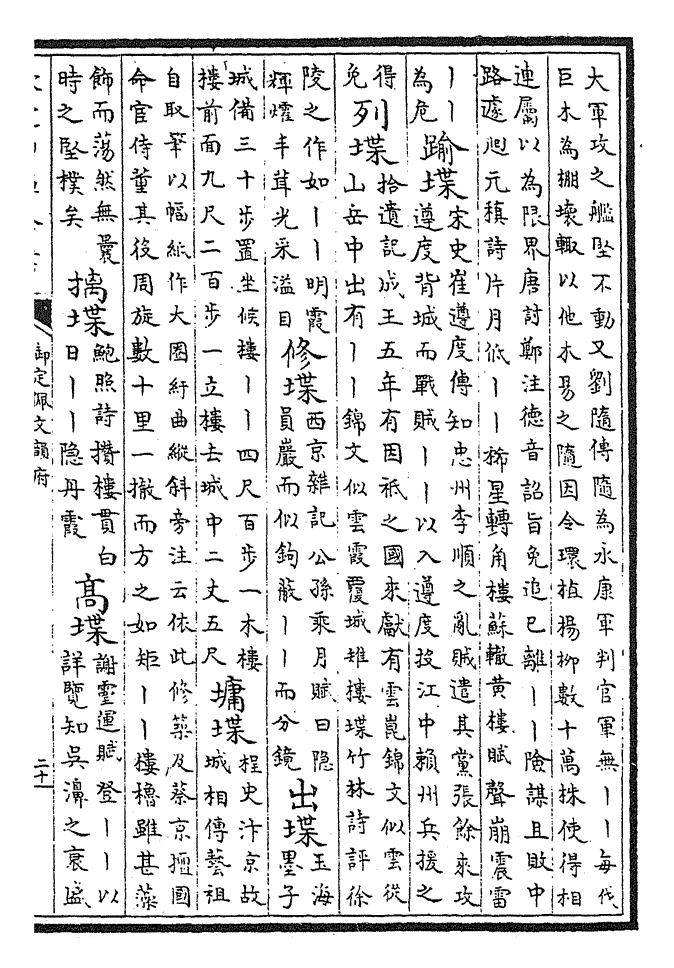 大軍攻之艦堅不動又劉隨傳隨為永康軍判官軍無丨丨每伐
巨木為棚壞輙以他木易之隨因令環植楊柳數十萬株使得相
連屬以為限界唐討鄭注德音詔旨免追已離丨丨險謀且敗中
路遽逥元稹詩片月低丨丨稀星轉角樓蘇轍黃樓賦聲崩震雷
丨丨
為危
踰堞
宋史崔遵度傳知忠州李順之亂賊遣其黨張餘來攻
遵度背城而戰賊丨丨以入遵度投江中賴州兵援之
得
免
列堞
拾遺記成王五年有因祇之國來獻有雲崑錦文似雲從
山岳中出有丨丨錦文似雲霞覆城雉樓堞竹林詩評徐
陵之作如丨丨明霞
輝燿丰茸光采溢目
修堞
西京雜記公孫乘月賦曰隐
員巖而似鉤蔽丨丨而分鏡
出堞
玉海
墨子
城備三十步置坐候樓丨丨四尺百步一木樓
樓前面九尺二百步一立樓去城中二丈五尺
墉堞
桯史汴京故
城相傳藝祖
自取筆以幅紙作大圏紆曲縱斜旁注云依此修築及蔡京擅國
命宦侍董其役周旋數十里一撤而方之如矩丨丨樓櫓雖甚藻
飾而蕩然無曩
時之堅樸矣
摛堞
鮑照詩攢樓貫白
日丨丨隐丹霞
高堞
謝靈運賦登丨丨以
詳覽知吳濞之衰盛
御定佩文韻府
二十